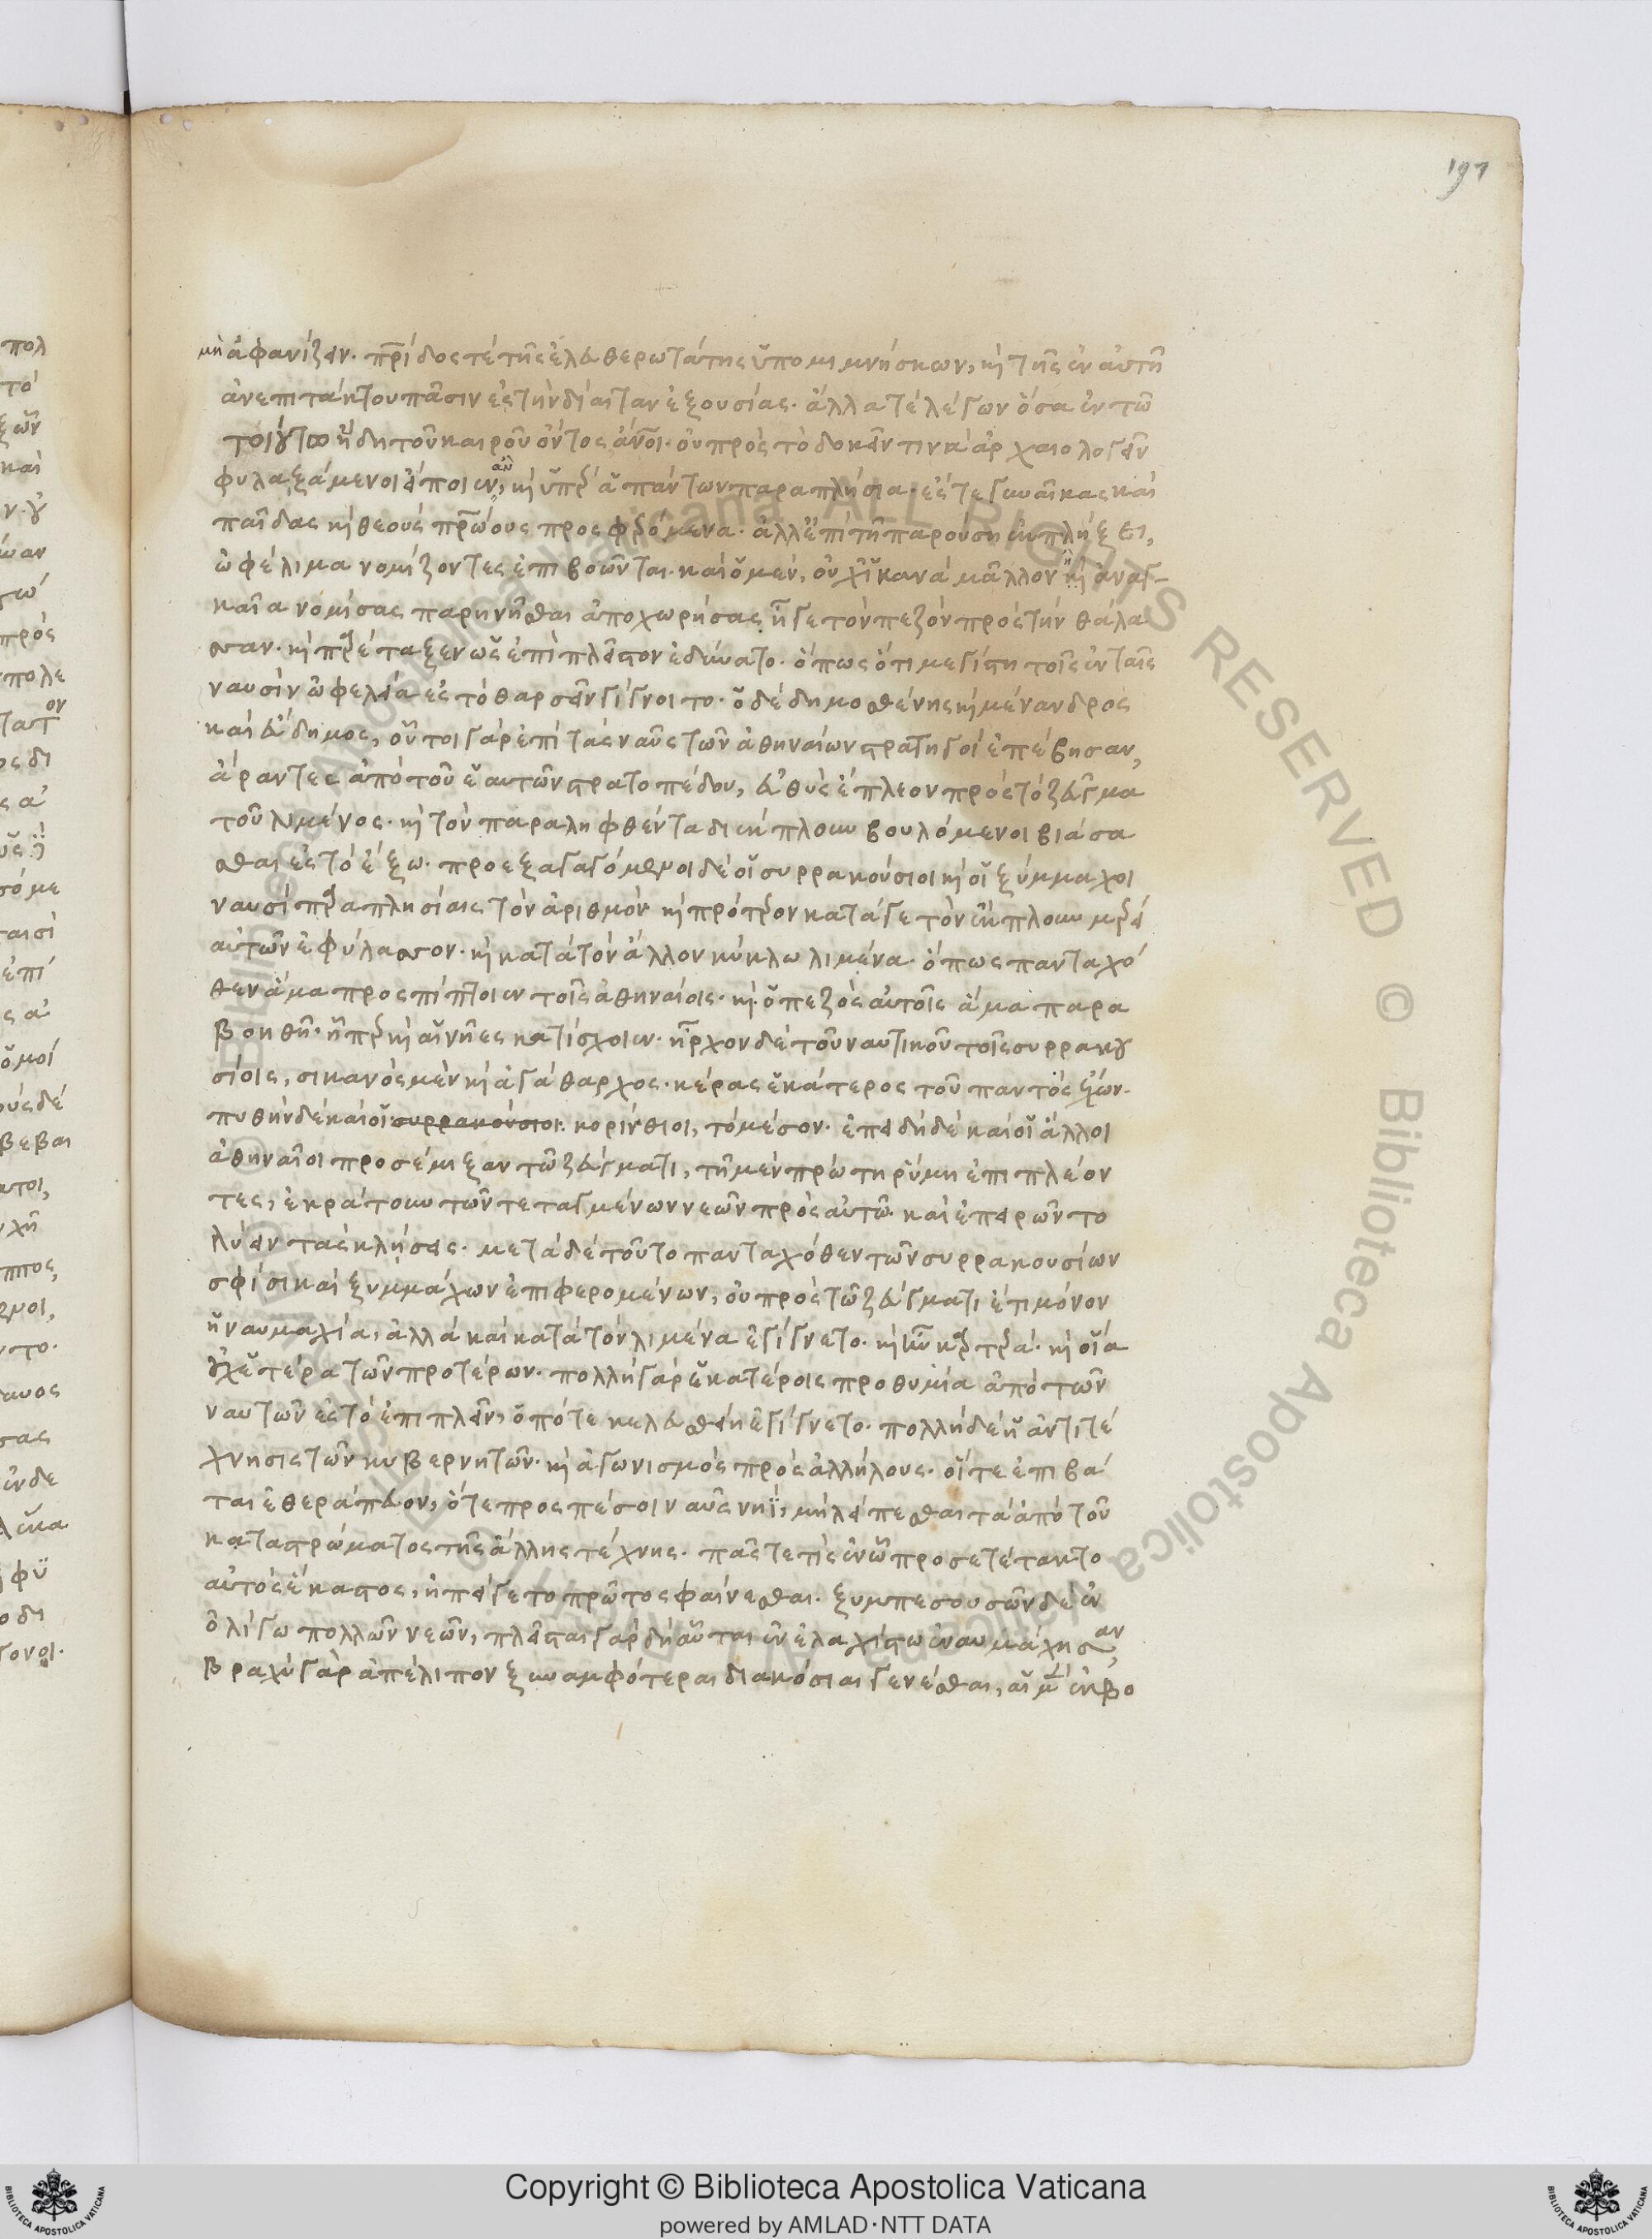 197
μὴ ἀφανίζειν. πρίδος τὲ τῆς ἐλευθερωτάτης ὑπομιμνήσκων, κὶ τῆς ἐν αὐτῆ
ἀνεπιτάκτου πᾶσιν ἐς τὴν δίαιταν ἐξουσίας. ἄλλα τὲ λέγων ὅσα ἐν τῶ
τοιούτω ἤδη τοῦ καιροῦ ὄντος ἄνοι. οὐ πρὸς τὸ δοκεῖν τινὰ ἀρχαιολογεῖν
φυλαξάμενοι εἴποιεν ἂν, κὶ ὑπὲρ ἁπάντων παραπλήσια. ἔς τε γυναῖκας καὶ
παῖδας κὶ θεοὺς πρώους προσφερόμενα. ἀλλ' ἐπὶ τῆ παρούση ἐκπλήξει,
ὠφέλιμα νομίζοντες ἐπιβοῶνται. καὶ ὁ μὲν, οὐχ ἱκανὰ μᾶλλον ἢ κὶ ἀναγ-
καῖα νομίσας παρηνῆσθαι ἀποχωρήσας ἦγε τὸν πεζὸν πρὸς τὴν θάλα
σσαν. κὶ παρέταξεν ὡς ἐπὶ πλεῖστον ἐδύνατο. ὅπως ὅτι μεγίστη τοῖς ἐν ταῖς
ναυσὶν ὠφελεία ἐς τὸ θαρσεῖν γίγνοιτο. ὁ δὲ δημοσθένης κὶ μένανδρος
καὶ εὔδημος, οὗτοι γὰρ ἐπὶ τὰς ναῦς τῶν ἀθηναίων στρατηγοὶ ἐπέβησαν,
ἄραντες ἀπὸ τοῦ ἑαυτῶν στρατοπέδου, εὐθὺς ἔπλεον πρὸς τὸ ζεῦγμα
τοῦ λιμένος. κὶ τὸν παραληφθέντα διέκπλουν βουλόμενοι βιάσα
σθαι ἐς τὸ ἔξω. προεξαγαγόμενοι δὲ οἱ συρρακούσιοι κὶ οἱ ξύμμαχοι
ναυσὶ παραπλησίαις τὸν ἀριθμὸν κὶ πρότερον κατά γε τὸν ἔκπλουν μέρει
αὐτῶν ἐφύλασσον. κὶ κατὰ τὸν ἄλλον κύκλω λιμένα. ὅπως πανταχό
θεν ἅμα προσπίπτοιεν τοῖς ἀθηναίοις. κὶ ὁ πεζὸς αὐτοῖς ἅμα παρα
βοηθῆ. ἧπερ κὶ αἱ νῆες κατίσχοιεν. ἦρχον δὲ τοῦ ναυτικοῦ τοῖς συρρακου
σίοις, σικανὸς μὲν κὶ ἀγάθαρχος. κέρας ἑκάτερος τοῦ παντὸς ἔχων.
πυθὴν δὲ καὶ οἱ συρρακούσιοι. κορίνθιοι, τὸ μέσον. ἐπειδὴ δὲ καὶ οἱ ἄλλοι
ἀθηναῖοι προσέμιξαν τῶ ζεύγματι, τῆ μὲν πρώτη ρύμη ἐπιπλέον
τες, ἐκράτουν τῶν τεταγμένων νεῶν πρὸς αὐτῶ. καὶ ἐπειρῶντο
λύειν τὰς κλήσεις. μετὰ δὲ τοῦτο πανταχόθεν τῶν συρρακουσίων
σφίσι καὶ ξυμμάχων ἐπιφερομένων, οὐ πρὸς τῶ ζεύγματι ἔτι μόνον
ἡ ναυμαχία, ἀλλὰ καὶ κατὰ τὸν λιμένα ἐγίγνετο. κὶ ἦν καρτερά. κὶ οἵα
οὐχ ἑτέρα τῶν προτέρων. πολλὴ γὰρ ἑκατέροις προθυμία ἀπὸ τῶν
ναυτῶν ἐς τὸ ἐπιπλεῖν, ὁπότε κελευσθείη ἐγίγνετο. πολλὴ δὲ ἡ ἀντιτέ
χνησις τῶν κυβερνητῶν. κὶ ἀγωνισμὸς πρὸς ἀλλήλους. οἵ τε ἐπιβά
ται ἐθεράπευον, ὅτε προσπέσοι ναῦς νηΐ, μὴ λείπεσθαι τὰ ἀπὸ τοῦ
καταστρώματος τῆς ἄλλης τέχνης. πᾶς τέ τις ἐν ὧ προσετέτακτο
αὐτὸς ἕκαστος, ἠπείγετο πρῶτος φαίνεσθαι. ξυμπεσουσῶν δὲ ἐν
ὀλίγω πολλῶν νεῶν, πλεῖσται γὰρ δὴ αὗται ἐν ἐλαχίστω ἐναυμάχησαν,
βραχὺ γὰρ ἀπέλιπον ξυναμφότεραι διακόσιαι γενέσθαι, αἱ μὲν ἐμβο
Copyright © Biblioteca Apostolica Vaticana
powered by AMLAD·NTT DATA